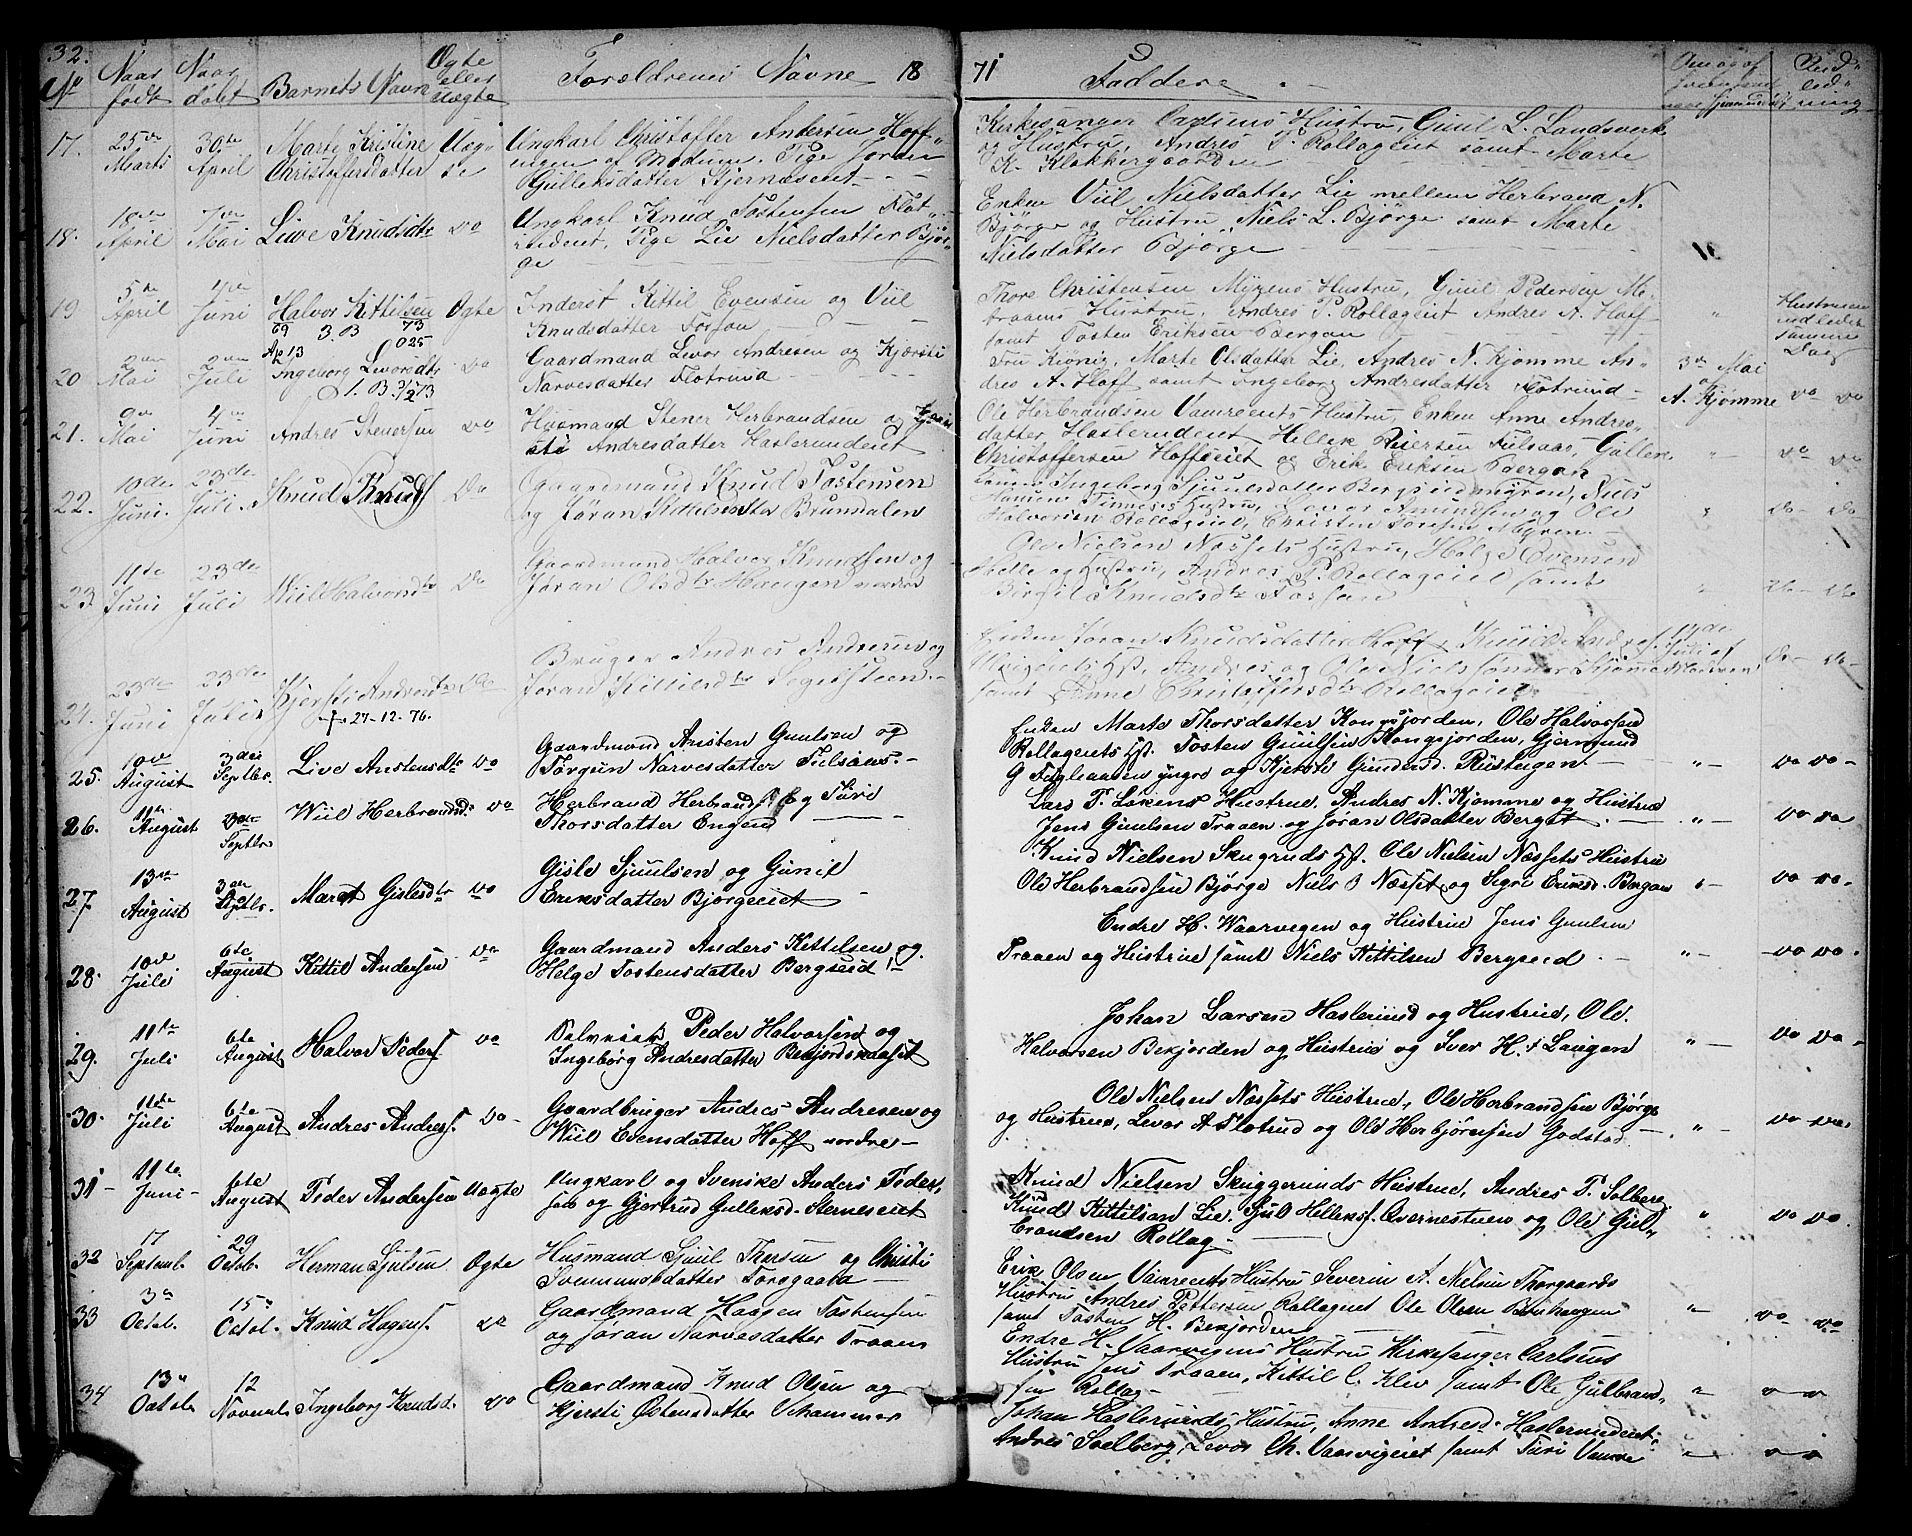 32.
No Naar født Naar døbt Barnets Navn Ægte eller Uægte Forældrenes Navne 18
71 Faddere
17. 25de Marts 30te April Marte Kristine Christoffersdatter Uægte
Ungkarl Christoffer Andersen Hoff
af Modum. Pige Jøran
Gulleksdatter Stjerneseiet
Kirkesanger Carlsens Hustru, Guul L. Landsverk
og Hustru, Andres P. Rollageiet samt Marte
K. Klokkergaarden
18. 18de April Mai Live Knudsdtr do
Ungkarl Knud Tostensen Flot
rudeiet, Pige Liv Nielsdatter Bjør
ge
Enken Viil Nielsdatter Lie mellem Herbrand N.
Bjørge og Hustru, Niels L. Bjørge samt Marte
Nielsdatter Bjørge
19 5te April Juni Halvor Kittilsen Ægte
Inderst Kittil Evensen og Viil
Knudsdatter Fossan
Thore Christensen Myrens Hustru, Guul Pedersen
Hustru, Andres P. Rollageiet Andres A. Hoff
samt Tosten Eriksen Bergan
20 2den Mai 2den Juli Ingeborg Levorsdtr do
Gaardmand Levor Andresen og Kjersti
Narvesdatter Flotrud
Marte Olsdatter Lie, Andres N. Kjomme An
dres A. Hoff samt Ingeborg Andresdatter Flotrud
3die Mai A. Kjomme do do
21. 9de Mai 4de Juni Andres Stenersen do
Huusmand Stener Herbrandsen og
Andresdatter Haslerudeiet
Ole Herbrandsen Vamreeiets Hustru, Enken Anne Andres
datter Haslerudeiet Hellek Reiersen Fulsaas, Gullek
Christoffersen Hoffseiet og Erik Eriksen Bergan
do do
22. 10de Juni. 23de Juli. Knud Knuds. Do
Gaardmand Knud Tostensen
og Jøran Kittilsdatter Brundalen
Ingeborg Sjuulsdatter Bergseidmyren, Niels
Hansens Finnesets Hustru, Levor Amundsen og Ole
Halvorsen Rollageiet, Christen Toresen Myren.
do do
23. 11te Juni 23de Juli Wiil Halvorsdtr Do
Gaardmand Halvor Knudsen og
Jøran Olsdtr Haugen nordre
Ole Nielsen Næssets Hustru, Helge Evensen
og Hustru, Andres P. Rollageiet samt
Birgit Knudsdtr Fossan
do do
24. 23de Juni 23de Juli Kjersti Andresdtr Do
27-12-76.
Bruger Andres Andresen og
Jøran Kittilsdtr
Enken Jøran Knudsdatter Hoff, Knud
Andres og Ole Nielssønner Kjomme
samt Anne Christoffersdtr Rollageiet
do do
25. 10de August 3die Septbr. Live Anstensdtr do
Gaardmand Ansten Guulsen og
Torgun Narvesdatter Fulsaas.
Enken Marte Thorsdatter Kongsjorden, Ole Halvorsen
Rollageiets Hst. Tosten Guulsen Kongsjorden, Gjermund
G Fuglaasen yngre og Kjersti Gundersd. Rustugen
do do
26. 11te August 3die Septbr Wiil Herbrandsd. do
Herbrand Herbrandsen og Turi
Thorsdatter Engeid
Lars T. Løkens Hustrue. Andres N. Kjomme og Hustrue
Jens Guulsen Traaen og Jøran Olsdatter Berget
do do
27 13de August 3die Septbr. Marit Gislesdtr do
Gisle Sjuulsen og Gunil
Eriksdatter Bjørgeeiet
Knud Nielsen Skugruds Hst. Ole Nielsen Næssets Hustru
Ole Herbrandsen Bjørge Niels O Næsset og Sigri Eriksd. Bergan
do do
28. 10de Juli 6te August Kittil Andersen do
Gaardmand Anders Kittilsen og
Helge Tostensdatter Bergseid
Endre H. Waarvegen og Hustrue Jens Guulsen
Traaen og Hustrue samt Niels Kittilsen Bergseid
do do
29. 11te Juli 6te August Halvor Peders. do
Peder Halvorsen og
Ingeborg Andresdatter Bekjordsnæset
Johan Larsen Haslerud og Hustrue, Ole
Halvorsen Bekjorden og Hustrue og Iver H. Laugen
do do
30. 11te Juli 6te August Andres Andress. Do
Gaardbruger Andres Andresen og
Wiil Evensdatter Hoff nordre
Ole Nielsens Næssets Hustrue, Ole Herbrandsen Bjørge
og Hustrue, Levor A. Flotrud og Ole Herbjørnsen Godstad
do do
31 11te Juni 6te August Peder Andersen Uægte
Ungkarl og Svenske Anders Peder
sen og Gjertrud Gulleksd. Sterneseiet
Knud Nielsen Skuggeruds Hustrue, Andres P. Solberg
Knud Kittilsen Lie. Sjul Helleks. Tvernestuen og Ole Gul
brandsen Rollag
do do
32 17 Septemb. 29 Octob. Herman Sjulsen Ægte
Husmand Sjuul Thorsen og Christi
Svennungsdatter Toresgaata
Erik Olsen Vamreeiets Hustru Severin A. Nielsen Thorgaards
Hustru Andres Pettersen Rollageiet Ole Olsen Bønhaugen
samt Tosten H. Bekjorden
do do
33 3de Octob. 15de Octob. Knud Hagens. do
Gaardmand Haagen Tostensen
og Jøran Narvesdatter Traaen
Endre H. Vaarvigens Hustru Kirkesanger Carlsens
Hustru Jens Traaen, Kittil C. Klev samt Ole Gulbrand
sen Rollag
34 13de Octob. 12 Novemb. Ingeborg Knudsd. do
Gaardmand Knud Olsen og
Kjersti Østensdatter Vehammer
Johan Hasleruds Hustru, Anne Andresd. Haslerudeiet
Andres Soelberg, Levor Ch. Vaarvigeiet samt Turi Vamre